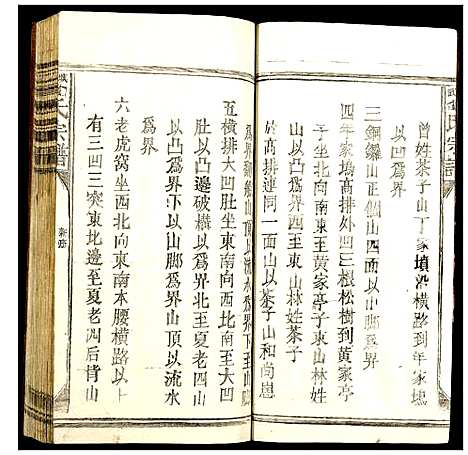 氏宗譜
曾姓茶子山丁家墳沿橫路到年家塆
以凹爲界
三銅鑼山正個山四面以山脚爲界
四年家塆高排外凹三根松樹到黃家亭
子坐北向南東至黃家亭子東山林姓
山以凸爲界西至東山林姓茶子
高排連同二面山以茶子山和尚崽
五橫排大凹肚坐東南向西北南至大凹
肚以凸邊破橫以爲界北至夏老四山
以凸爲界下以山脚爲界山頂以流水
爲界
六老虎窩坐西北向東南本腰橫路以上
有三凹三突東北邊至夏老凋后背山
氏宗譜